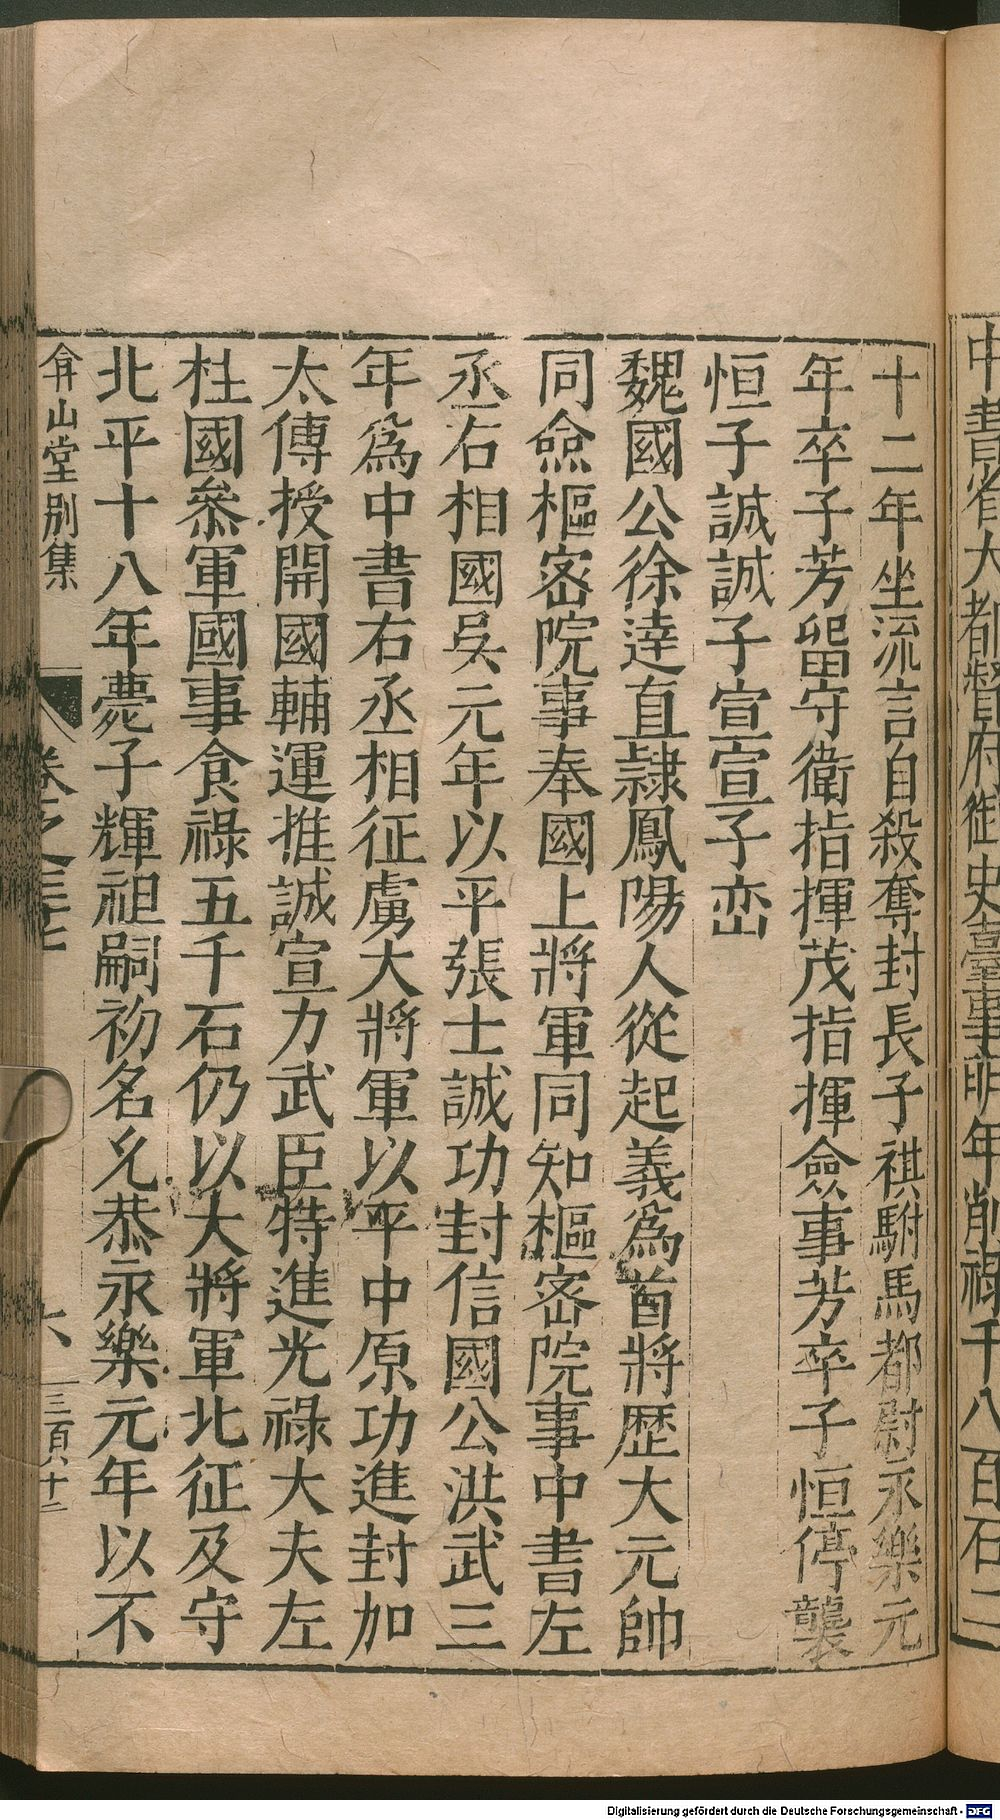 中書省大都督府御史臺事明年削祿千八百石二
十二年坐流言自殺奪封長子祺駙馬都尉永樂元
年卒子芳留守衛指揮茂指揮僉事芳卒子恒停襲
恒子誠誠子宣宣子峦
魏國公徐逹直隷鳳陽人從起義為首將歴大元帥
同僉樞密院事奉國上將軍同知樞密院事中書左
丞右相國吳元年以平張士誠功封信國公洪武三
年為中書右丞相征虜大將軍以平中原功進封加
太傅授開國輔運推誠宣力武臣特進光祿大夫左
柱國叅軍國事食祿五千石仍以大將軍北征及守
北平十八年薨子輝祖嗣初名允恭永樂元年以不
弇山堂別集
卷之三七
六
三頁十二
Digitalisierung gefördert durch die Deutsche Forschungsgemeinschaft - DFG